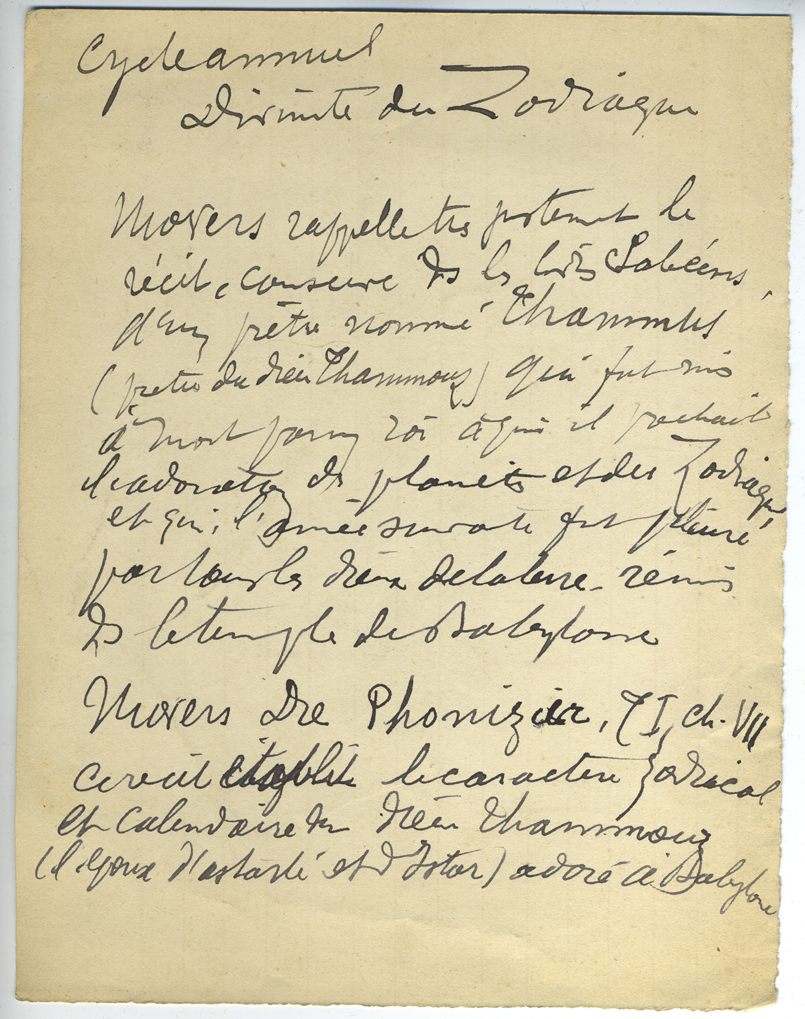 Cycle annuel
Divinité du Zodiaque
Movers rappelle très justement le
récit, conservé ds les livres Sabéens,
d'un prêtre nommé Thammus
(prêtre du dieu Thammouz) qui fut mis
à mort par un roi à qui il prêchait
l'adoration des planètes et des Zodiaque,
et qui, l'année suivante fut pleuré
par tous les dieux de la terre réunis
ds le temple de Babylone
Movers Die Phonizier, T I, ch. VII
ce récit établit le caractère zodiacal
et calendaire du dieu Thammouz
(l'époux d'Astarté et d'Istar) adoré à Babylone